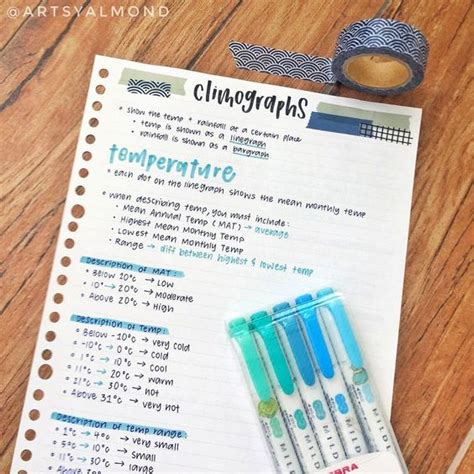 @ARTSYALMOND
climographs
• show the temp + rainfall at a certain place
• temp is shown as a linegraph
• rainfall is shown as a bargraph
temperature
• each dot on the linegraph shows the mean monthly temp
• when describing temp, you must include:
• Mean Annual Temp (MAT) → average
• Highest Mean Monthly Temp
• Lowest Mean Monthly Temp
• Range → diff between highest & lowest temp
Description of MAT:
• Below 10°c → Low
• 10°c → 20°c → Moderate
• Above 20°c → High
Description of Temp:
• Below -10°c → very cold
• -10°c → 0°c → cold
• 1°c → 10°c → cool
• 11°c → 20°c → warm
• 21°c → 30°c → hot
• Above 31°c → very hot
Description of temp range:
• 1°c → 4°c → very small
• 5°c → 10°c → small
• 11°c → → large
ZEBRA
MILD